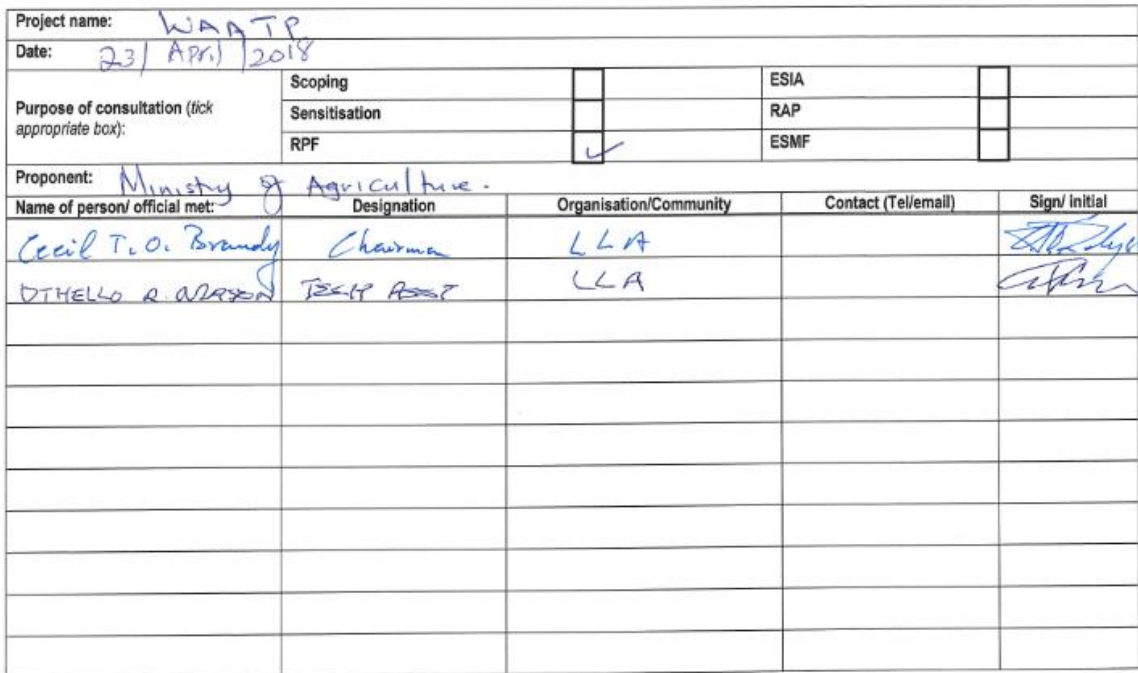 Project name: WAATP
Date: 23/ April /2018
Purpose of consultation (tick appropriate box):
Scoping ESIA
Sensitisation RAP
RPF ✓ ESMF
Proponent: Ministry of Agriculture.
Name of person/ official met: Designation Organisation/Community Contact (Tel/email) Sign/ initial
Cecil T.O. Brandy Chairman LLA
OTHELLO R. TECH ASST LLA